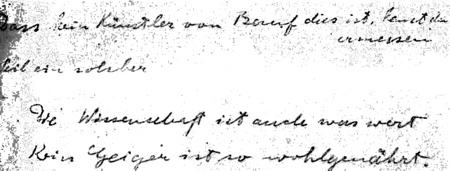 Dass kein Künstler von Beruf dies ist, kanst du
ermessen
Weil ein solcher
Die Wissenschaft ist auch was wert
Kein Geiger ist so wohlgenährt.